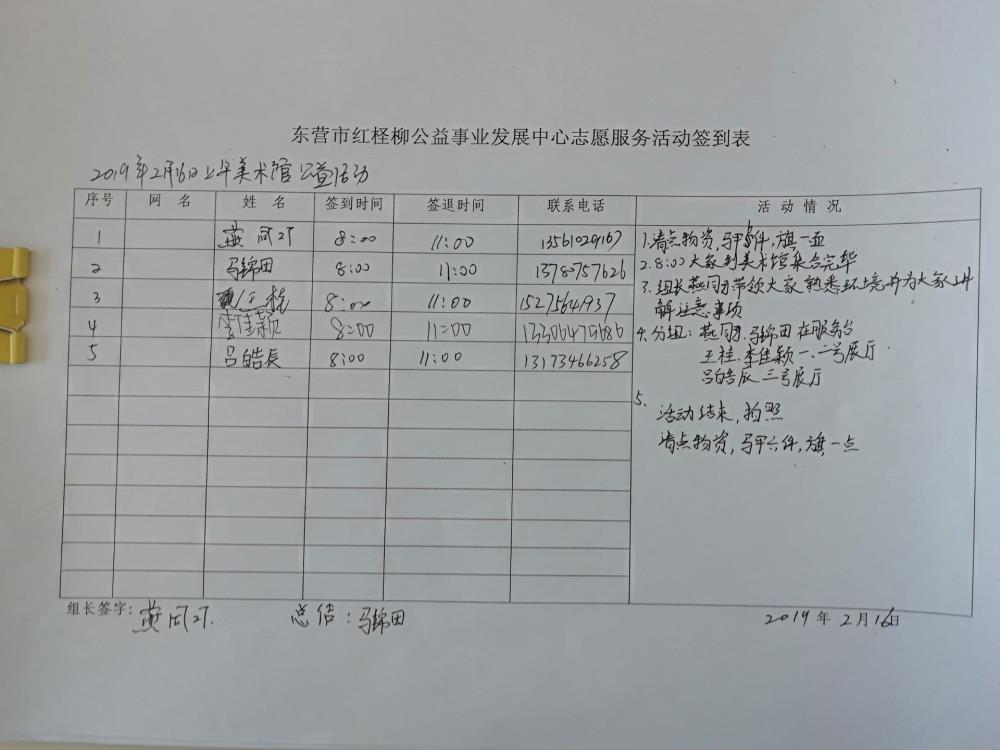 东营市红柽柳公益事业发展中心志愿服务活动签到表
2019年2月16日上午美术馆公益活动
序号 网 名 姓 名 签到时间 签退时间 联系电话 活 动 情 况
1 燕同 8:00 11:00 13561029167
2 马锦田 8:00 11:00 13780757626
3 王桂 8:00 11:00 15275641937
4 李佳颖 8:00 11:00
5 吕皓辰 8:00 11:00 13173466258
1.清点物资,马甲 件,旗一面
2.8:00大家到美术馆集合完毕
3.组长燕同 带领大家熟悉环境并为大家讲
解注意事项
4.分组:燕同 .马锦田在服务台
王桂.李佳颖一.二号展厅
吕皓辰三号展厅
5.
活动结束,拍照
清点物资,马甲六件,旗一点
组长签字:燕同 总结:马锦田 2019年2月16日